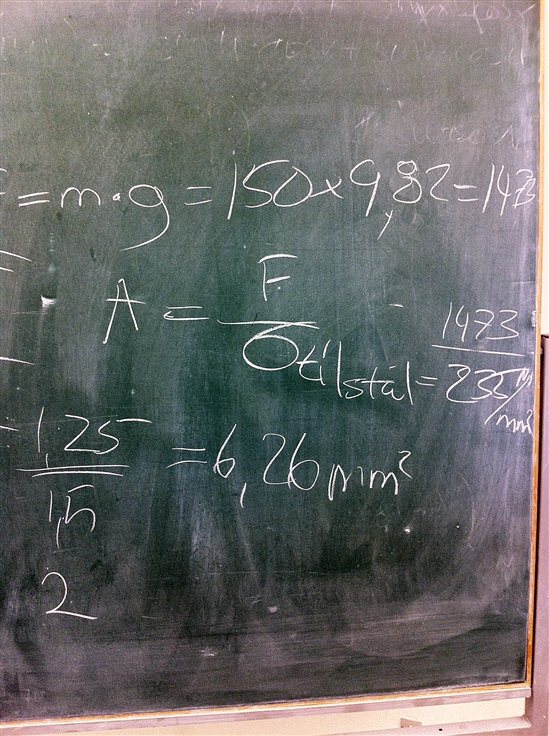 = m · g = 150 × 9,82 = 1473
A = F / σ till stål = 1473 / 235 N/mm²
1,25 / 1,5 = 6,26 mm²
2